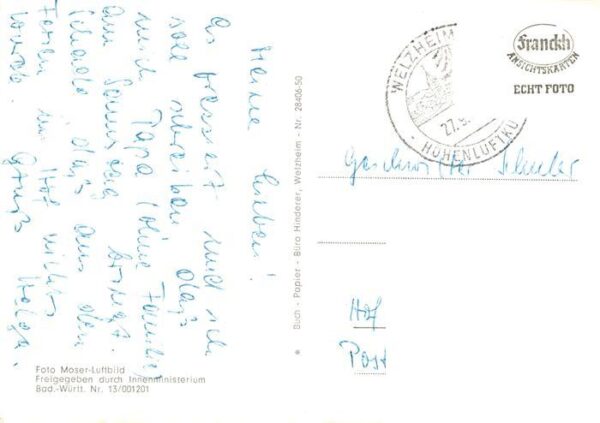 Meine Lieben!
Es pressiert und ich
soll schreiben, daß
mich Papa (ohne Familie)
am Samstag bringt.
Schade daß aus den
Ferien im Hof nichts
wurde. Gruß Helga.
Foto Moser-Luftbild
Freigegeben durch Innenministerium
Bad.-Württ. Nr. 13/001201
Buch - Papier - Büro Hinderer, Welzheim - Nr. 28406-50
WELZHEIM
27.9.
HÖHENLUFTKU
Franckh
ANSICHTSKARTEN
ECHT FOTO
Geschwister
Hof
Post